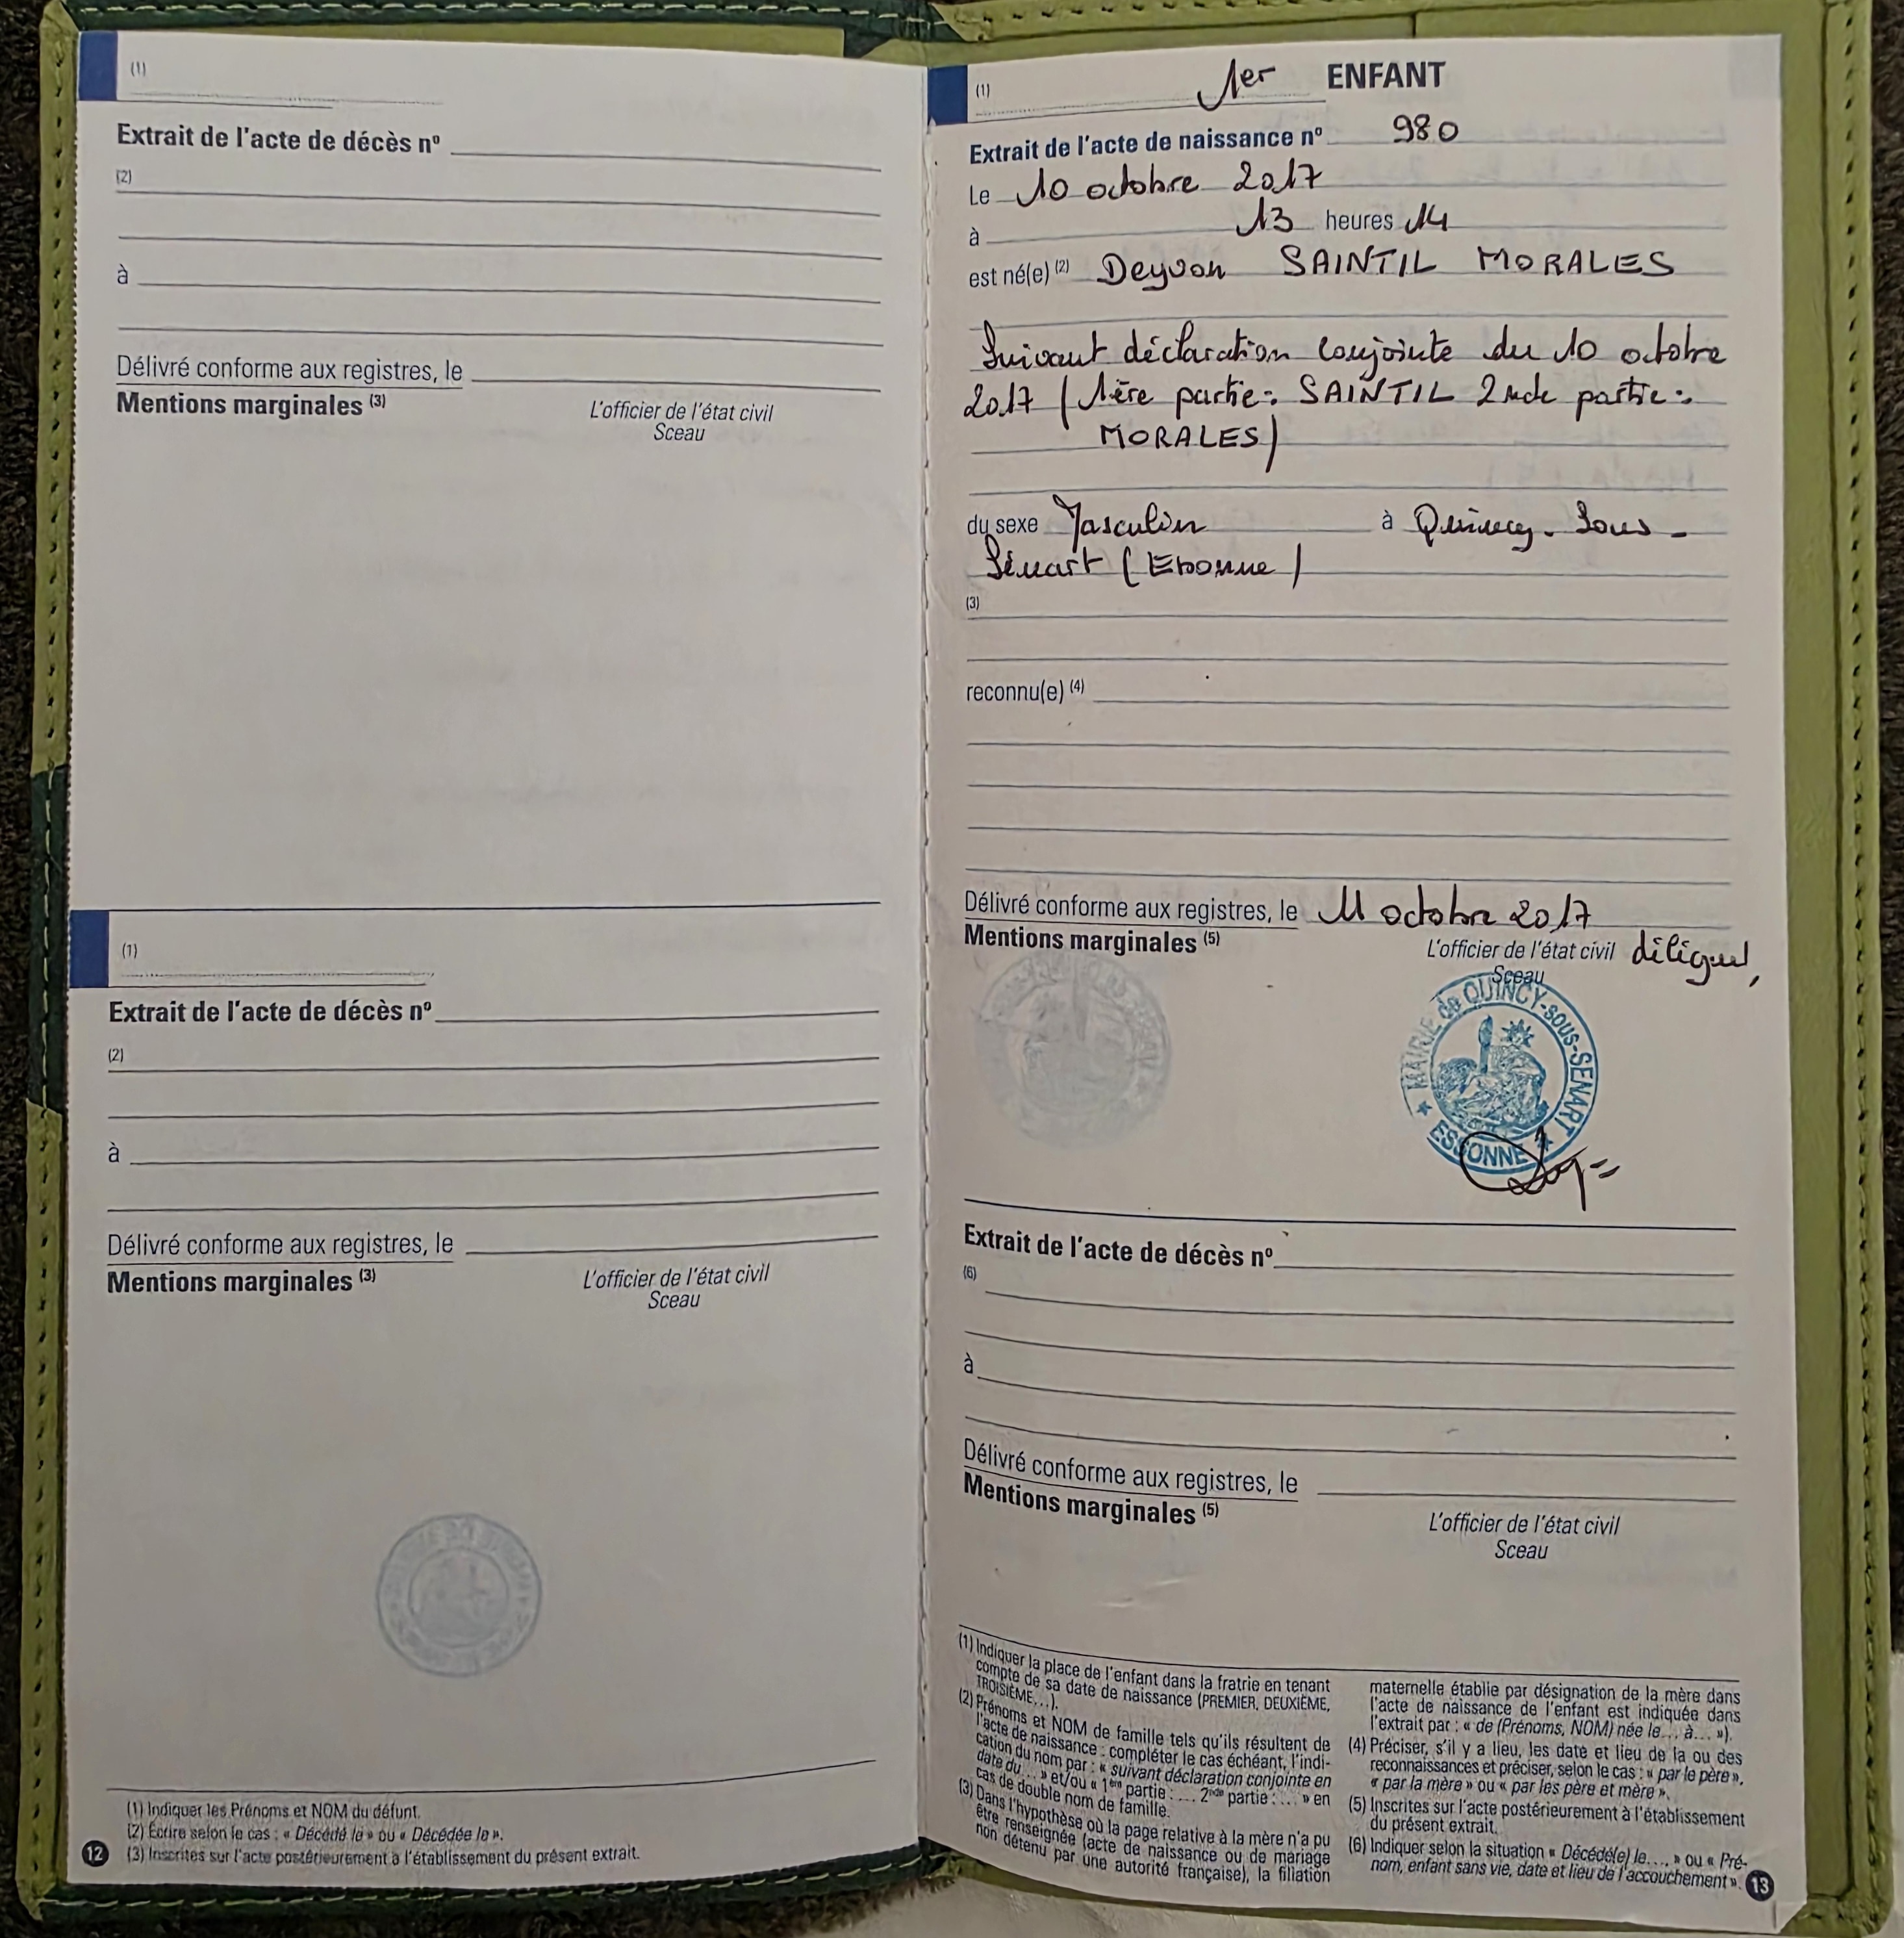 (1)
Extrait de l'acte de décès nº
(2)
à
Délivré conforme aux registres, le
Mentions marginales (3)
L'officier de l'état civil
Sceau
(1)
Extrait de l'acte de décès nº
(2)
à
Délivré conforme aux registres, le
Mentions marginales (3)
L'officier de l'état civil
Sceau
(1) Indiquer les Prénoms et NOM du défunt.
(2) Écrire selon le cas : « Décédé le » ou « Décédée le ».
(3) Inscrites sur l'acte postérieurement à l'établissement du présent extrait.
12
(1) 1er ENFANT
Extrait de l'acte de naissance nº 980
Le 10 octobre 2017
à 13 heures 14
est né(e) (2) Deyvon SAINTIL MORALES
Suivant déclaration conjointe du 10 octobre
2017 (1ère partie : SAINTIL 2nde partie :
MORALES)
du sexe Masculin à Quincy-Sous-
Sénart (Essonne)
(3)
reconnu(e) (4)
Délivré conforme aux registres, le 11 octobre 2017
Mentions marginales (5)
L'officier de l'état civil
Sceau
MAIRIE de QUINCY-sous-SENART
ESSONNE
Extrait de l'acte de décès nº
(6)
à
Délivré conforme aux registres, le
Mentions marginales (5)
L'officier de l'état civil
Sceau
(1) Indiquer la place de l'enfant dans la fratrie en tenant
compte de sa date de naissance (PREMIER, DEUXIÈME,
TROISIÈME...).
(2) Prénoms et NOM de famille tels qu'ils résultent de
l'acte de naissance : compléter le cas échéant, l'indi-
cation du nom par : « suivant déclaration conjointe en
date du... » et/ou « 1ère partie : ... 2nde partie : ... » en
cas de double nom de famille.
(3) Dans l'hypothèse où la page relative à la mère n'a pu
être renseignée (acte de naissance ou de mariage
non détenu par une autorité française), la filiation
maternelle établie par désignation de la mère dans
l'acte de naissance de l'enfant est indiquée dans
l'extrait par : « de (Prénoms, NOM) née le... à... »).
(4) Préciser, s'il y a lieu, les date et lieu de la ou des
reconnaissances et préciser, selon le cas : « par le père »,
« par la mère » ou « par les père et mère ».
(5) Inscrites sur l'acte postérieurement à l'établissement
du présent extrait.
(6) Indiquer selon la situation « Décédé(e) le.... » ou « Pré-
nom, enfant sans vie, date et lieu de l'accouchement ».
13